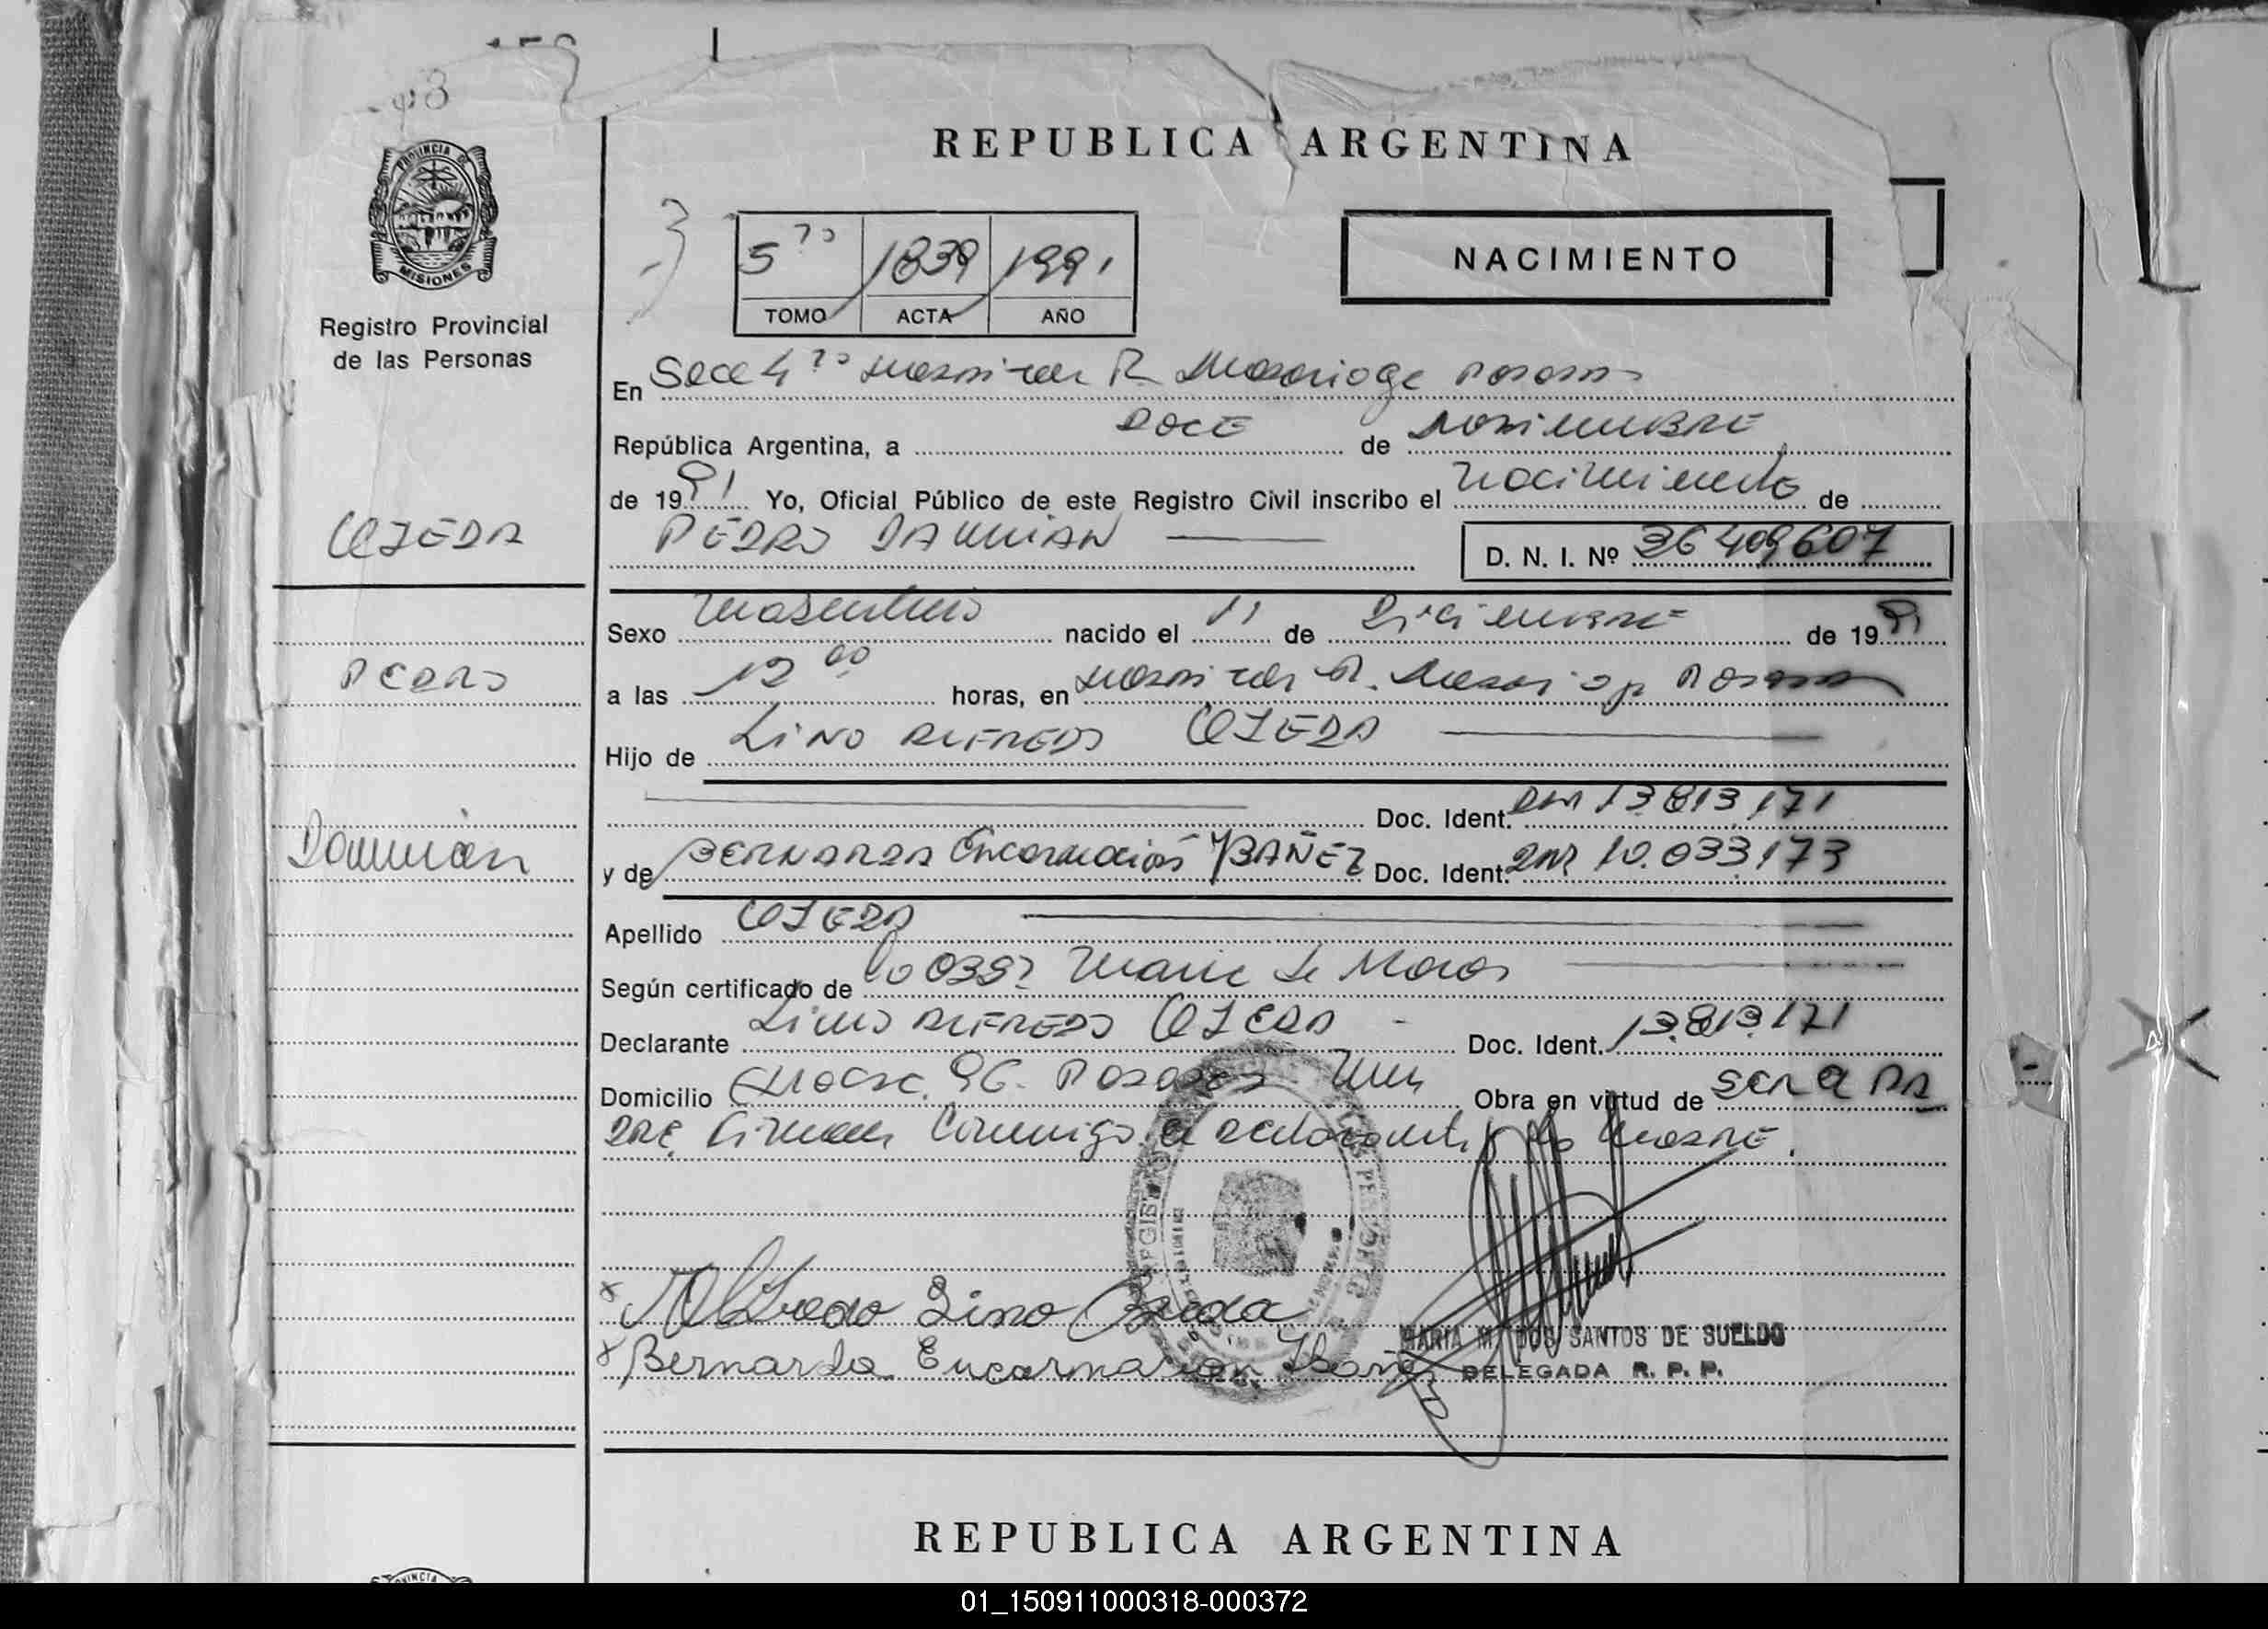 REPUBLICA ARGENTINA
PROVINCIA DE
MISIONES
Registro Provincial
de las Personas
5to 1839 1991
TOMO ACTA AÑO
NACIMIENTO
En Secc 4to R. Madariaga Posadas
República Argentina, a DOCE de
de 1991 Yo, Oficial Público de este Registro Civil inscribo el Nacimiento de
OJEDA
PEDRO DAMIAN
D. N. I. Nº 36409607
Sexo Masculino nacido el 11 de Diciembre de 1991
PEDRO
a las 12 00 horas, en Hospital R. Madariaga Posadas
Hijo de LINO ALFREDO OJEDA
Doc. Ident. DNI 13.813.171
Damián
y de BERNARDA Encarnación YBAÑEZ Doc. Ident. DNI 10.033.173
Apellido OJEDA
Según certificado de
Declarante LINO ALFREDO OJEDA Doc. Ident. 13.813.171
Domicilio 96 POSADAS Obra en virtud de SER el PA
DRE, Firman Conmigo el declarante y la MADRE.
x Alfredo Lino Ojeda
MARIA M. DOS SANTOS DE SUELDO
x Bernarda Encarnacion Ibañez
DELEGADA R. P. P.
REPUBLICA ARGENTINA
01_150911000318-000372